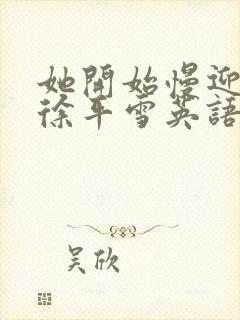 她開始慢迎
徐平雪英語
吴欣